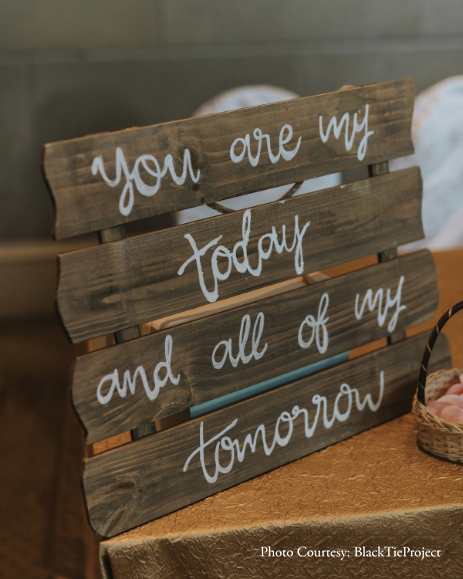 you are my
today
and all of my
tomorrow
Photo Courtesy: BlackTieProject